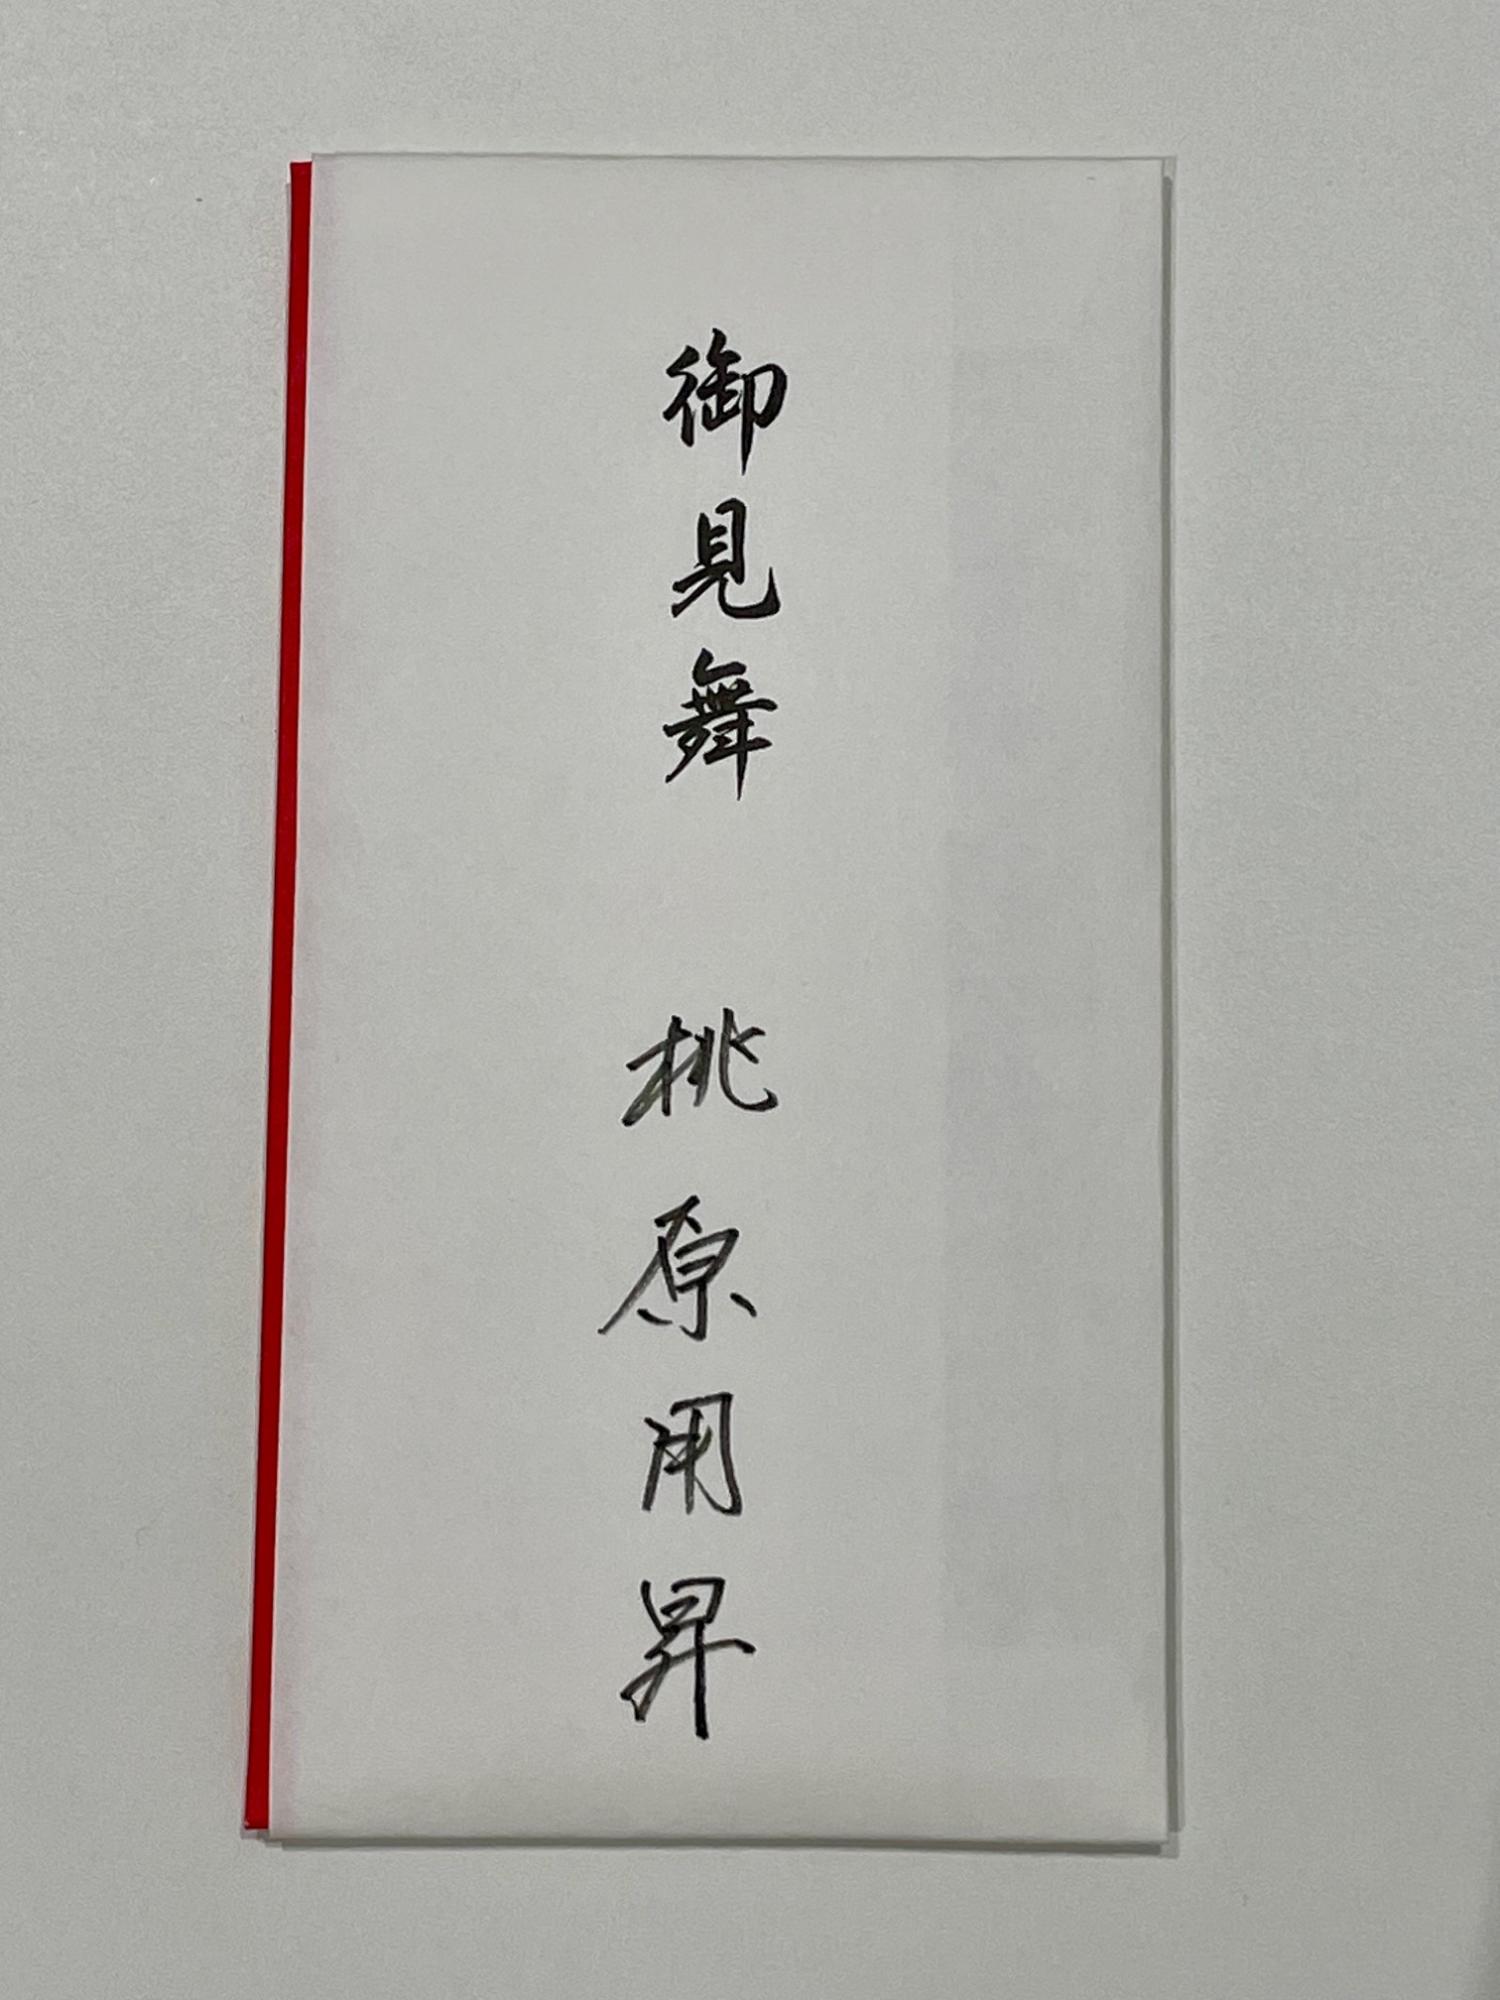 御見舞
桃原用昇